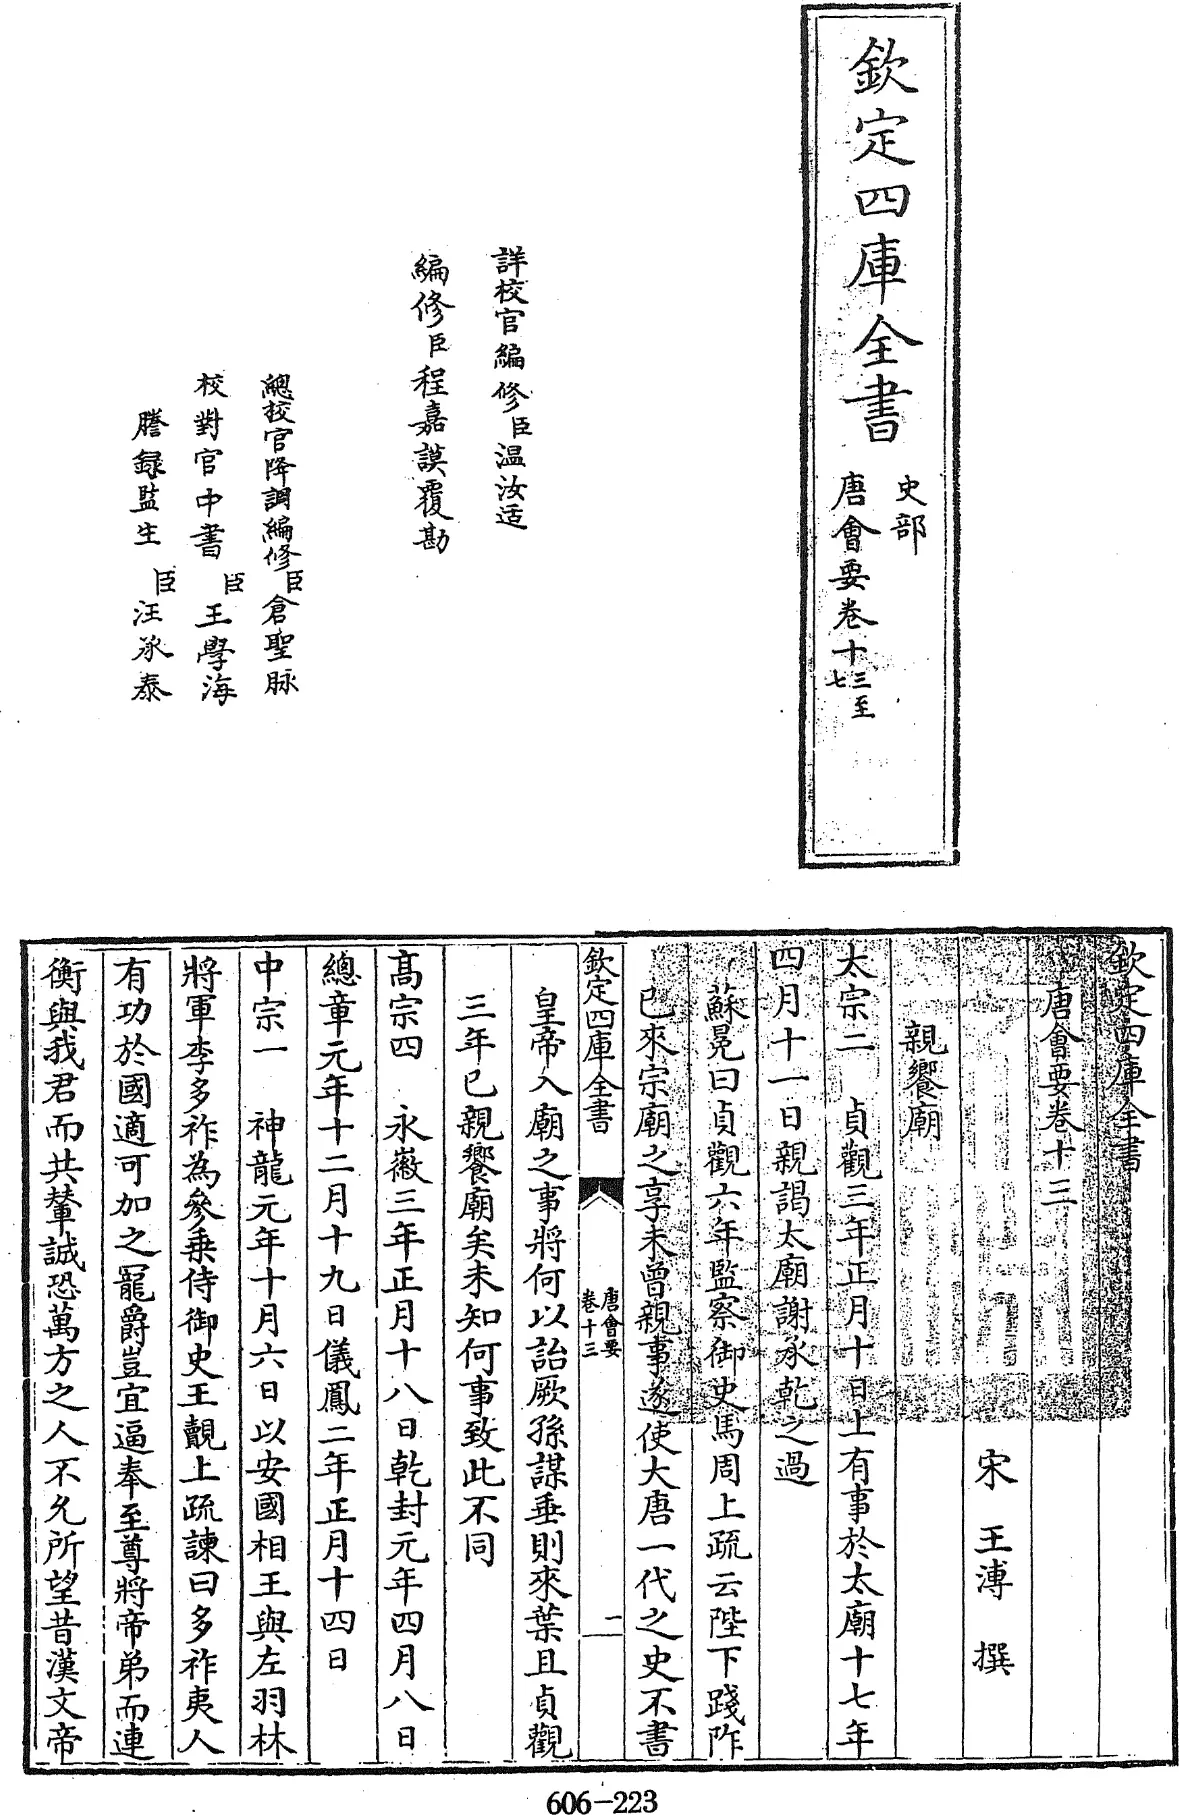 欽定四庫全書
史部
唐會要卷十三至
七
詳校官編修臣温汝适
編修臣程嘉謨覆勘
總校官降調編修臣倉聖脉
校對官中書臣王學海
謄錄監生臣汪承泰
欽定四庫全書
唐會要卷十三
宋 王溥 撰
親饗廟
太宗二 貞觀三年正月十日上有事於太廟十七年
四月十一日親謁太廟謝承乾之過
蘇冕曰貞觀六年監察御史馬周上疏云陛下踐阼
已來宗廟之享未曾親事遂使大唐一代之史不書
欽定四庫全書
唐會要
卷十三
一
皇帝入廟之事將何以詒厥孫謀垂則來葉且貞觀
三年已親饗廟矣未知何事致此不同
髙宗四 永徽三年正月十八日乾封元年四月八日
總章元年十二月十九日儀鳳二年正月十四日
中宗一 神龍元年十月六日以安國相王與左羽林
將軍李多祚為參乗侍御史王覿上疏諫曰多祚夷人
有功於國適可加之寵爵豈宜逼奉至尊將帝弟而連
衡與我君而共輦誠恐萬方之人不允所望昔漢文帝
606-223